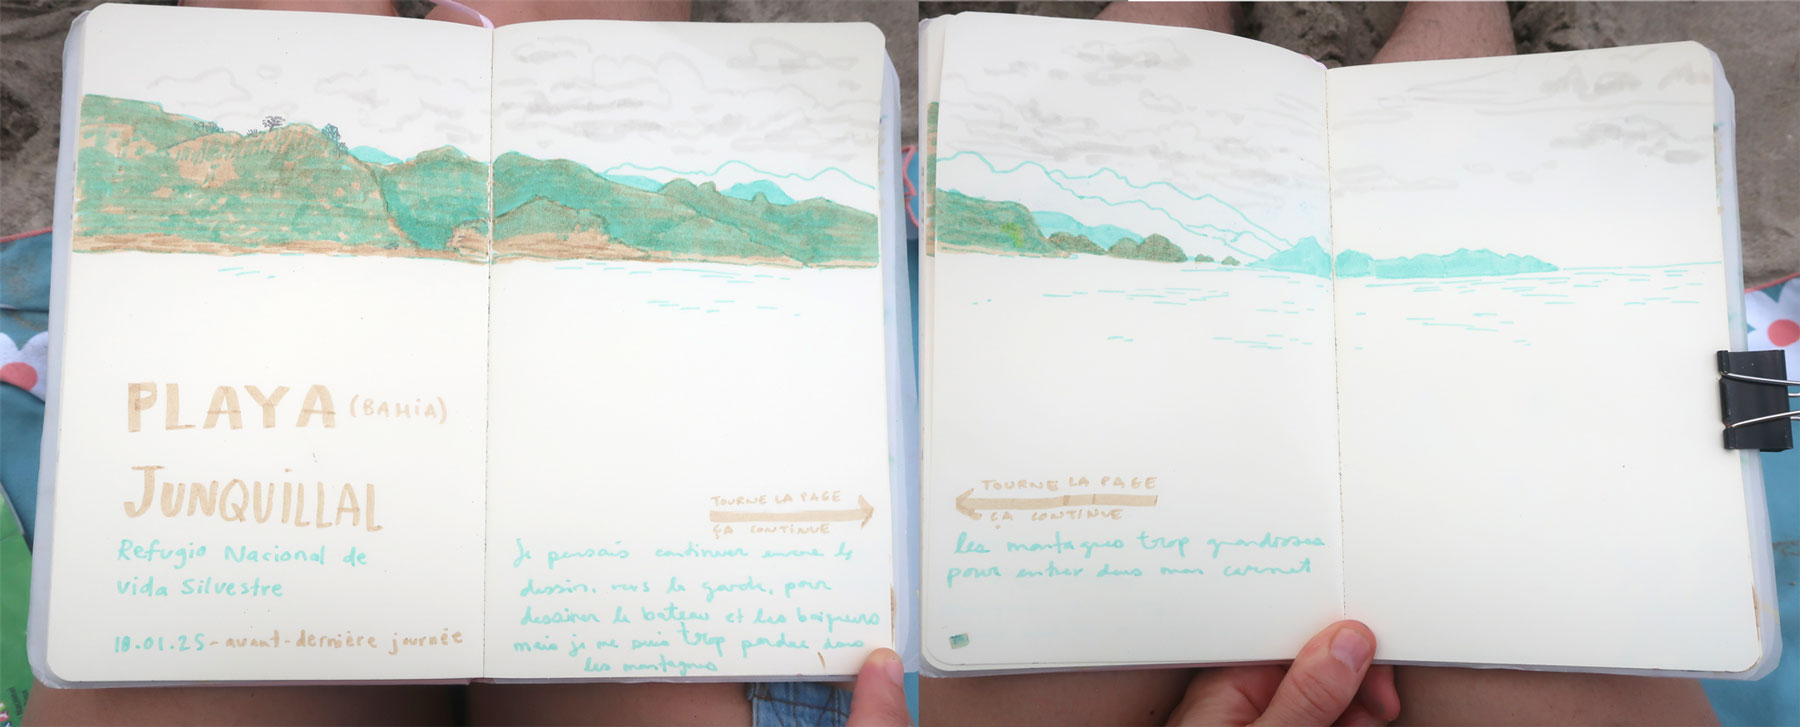 PLAYA (BAHIA)
JUNQUILLAL
Refugio Nacional de
vida Silvestre
18.01.25 - avant-dernière journée
TOURNE LA PAGE
ÇA CONTINUE
Je pensais continuer encore le
dessin, vers la gauche, pour
dessiner le bateau et les baigneurs
mais je me suis trop perdue dans
les montagnes
TOURNE LA PAGE
ÇA CONTINUE
les montagnes trop grandioses
pour entrer dans mon carnet